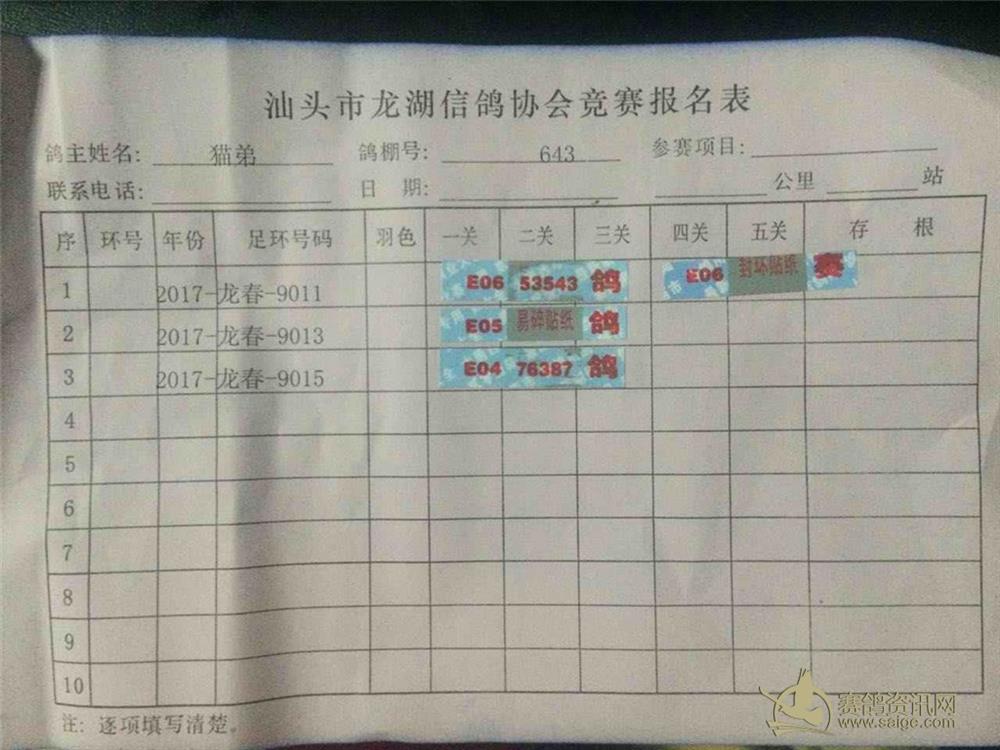 汕头市龙湖信鸽协会竞赛报名表
鸽主姓名: 猫弟 鸽棚号: 643 参赛项目:
联系电话: 日 期: 公里 站
序 环号 年份 足环号码 羽色 一关 二关 三关 四关 五关 存 根
1 2017-龙春-9011 E06 53543 鸽 E06 封环贴纸 赛
2 2017-龙春-9013 E05 易碎贴纸 鸽
3 2017-龙春-9015 E04 76387 鸽
4
5
6
7
8
9
10
注: 逐项填写清楚。
赛鸽资讯网
www.saige.com